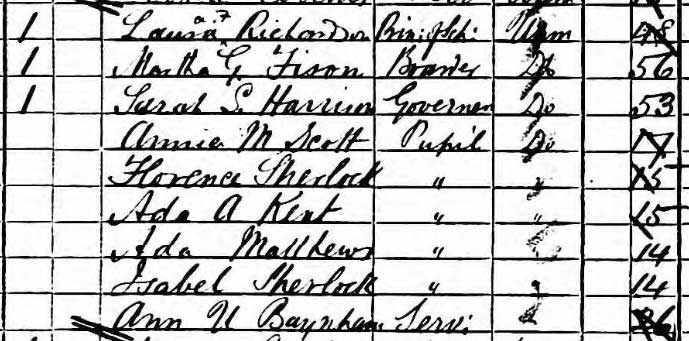 1 Laura Richardson Prin: of Sch: Unm 48
1 Martha G. Fison Boarder Do 56
1 Sarah S. Harrison Governess Do 53
Annie M Scott Pupil Do 17
Florence Sherlock " " 15
Ada A Kent " " 15
Ada Matthews " 14
Isabel Sherlock " " 14
Ann U Baynham Serv: